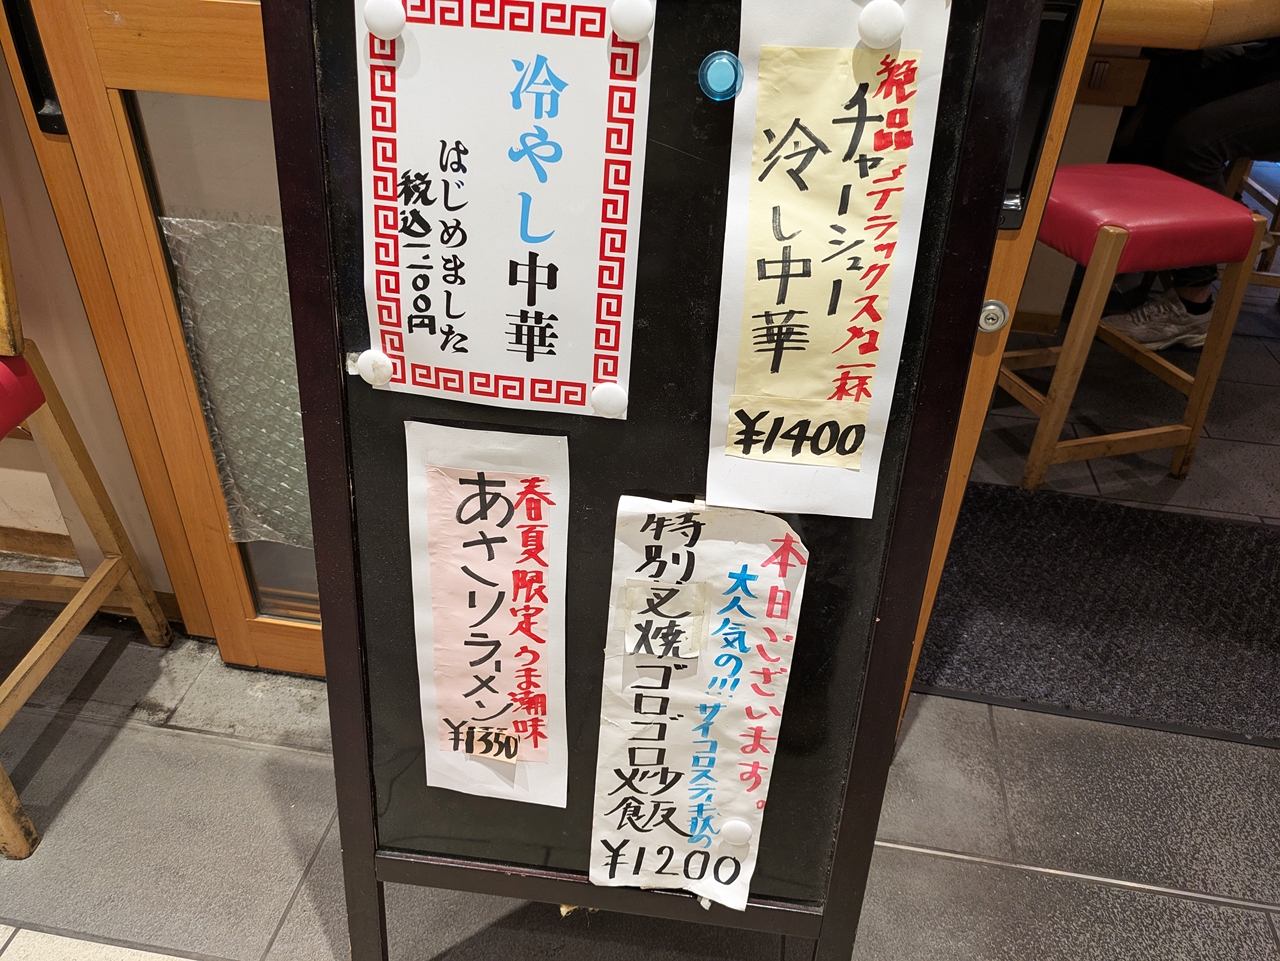 冷やし中華
はじめました
税込一、一〇〇円
絶品デラックスな一杯
チャーシュー
冷し中華
¥1400
春夏限定うま潮味
あさりラーメン
¥1350
本日ございます。
大人気の!!!サイコロステーキ状の
特別叉焼ゴロゴロ炒飯
¥1200